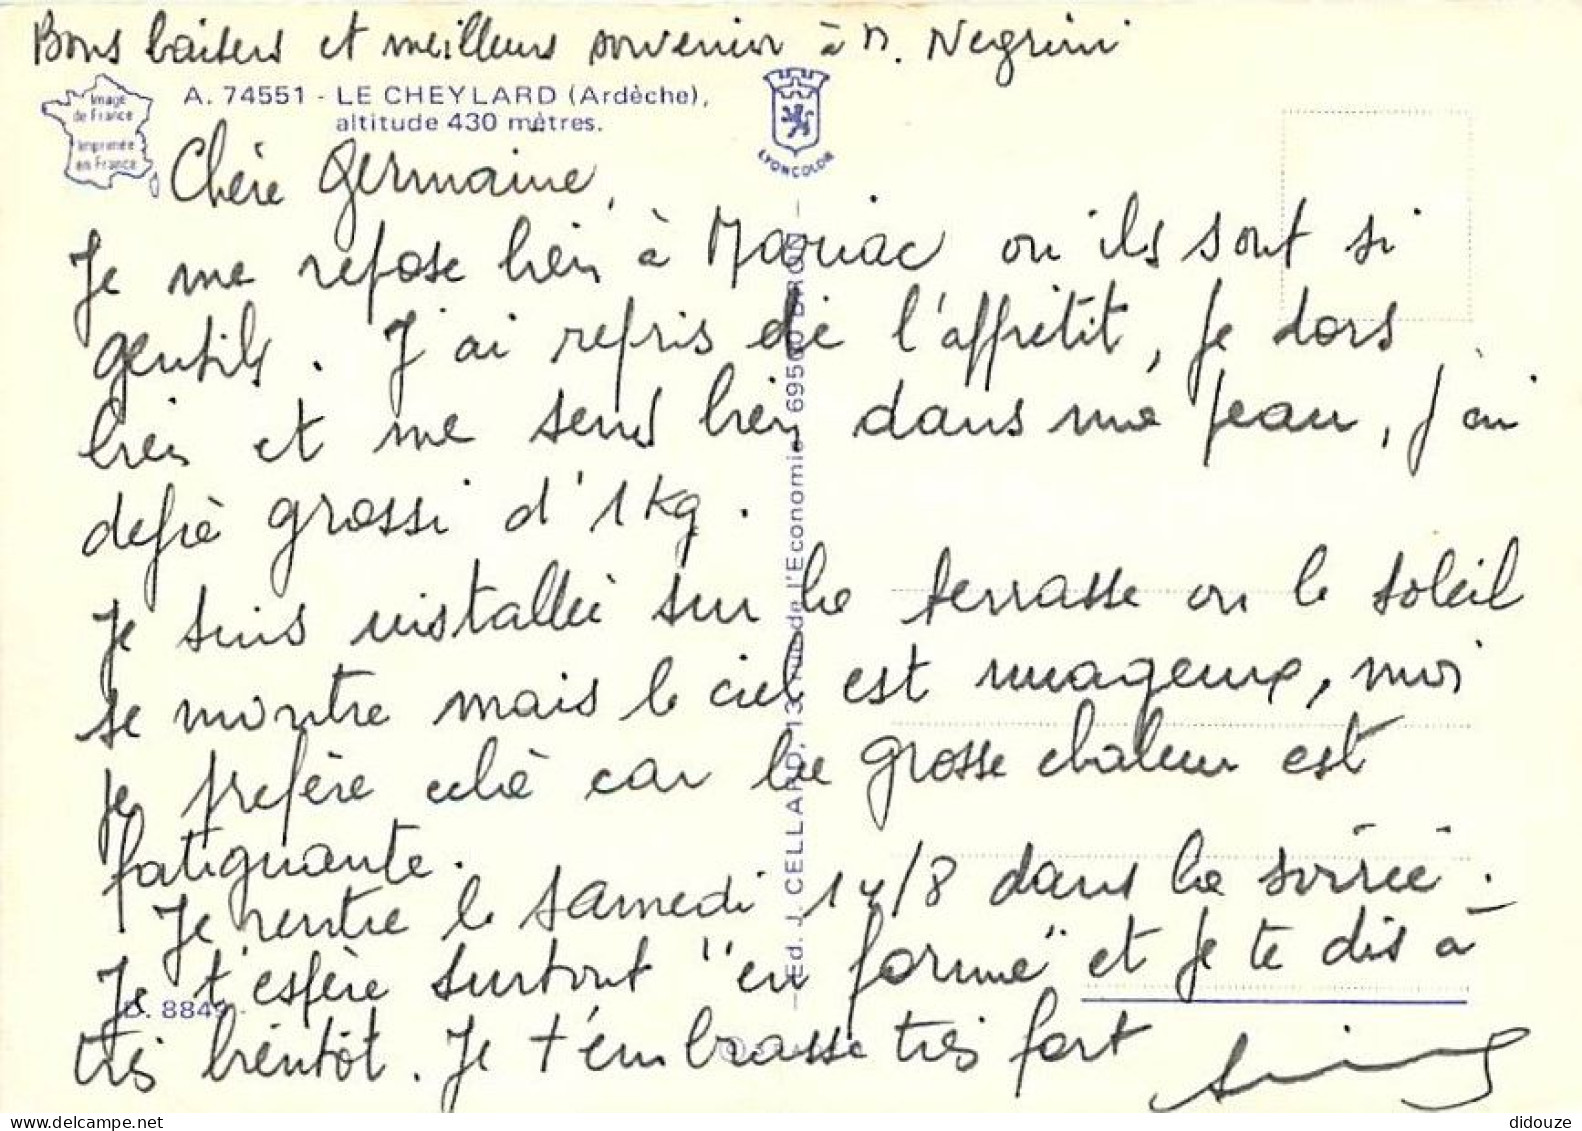 Bons baisers et meilleurs souvenir à M. Negrini
Image
de France
Imprimée
en France
A. 74551 - LE CHEYLARD (Ardèche),
altitude 430 mètres.
LYONCOLOR
Chère Germaine,
Je me repose bien à Mariac ou ils sont si
gentils. J'ai repris de l'appétit, je dors
bien et me sens bien dans ma peau, j'ai
déjà grossi d'1kg.
Je suis installée sur la terrasse ou le soleil
se montre mais le ciel est nuageux, moi
je préfère celà car la grosse chaleur est
fatiguante.
Je rentre le samedi 14/8 dans la soirée.
Je t'espère surtout "en forme" et je te dis à
très bientôt. Je t'embrasse très fort
Ed. J. CELLARD, de l'Economie 69500 BRON
D. 8849
didouze